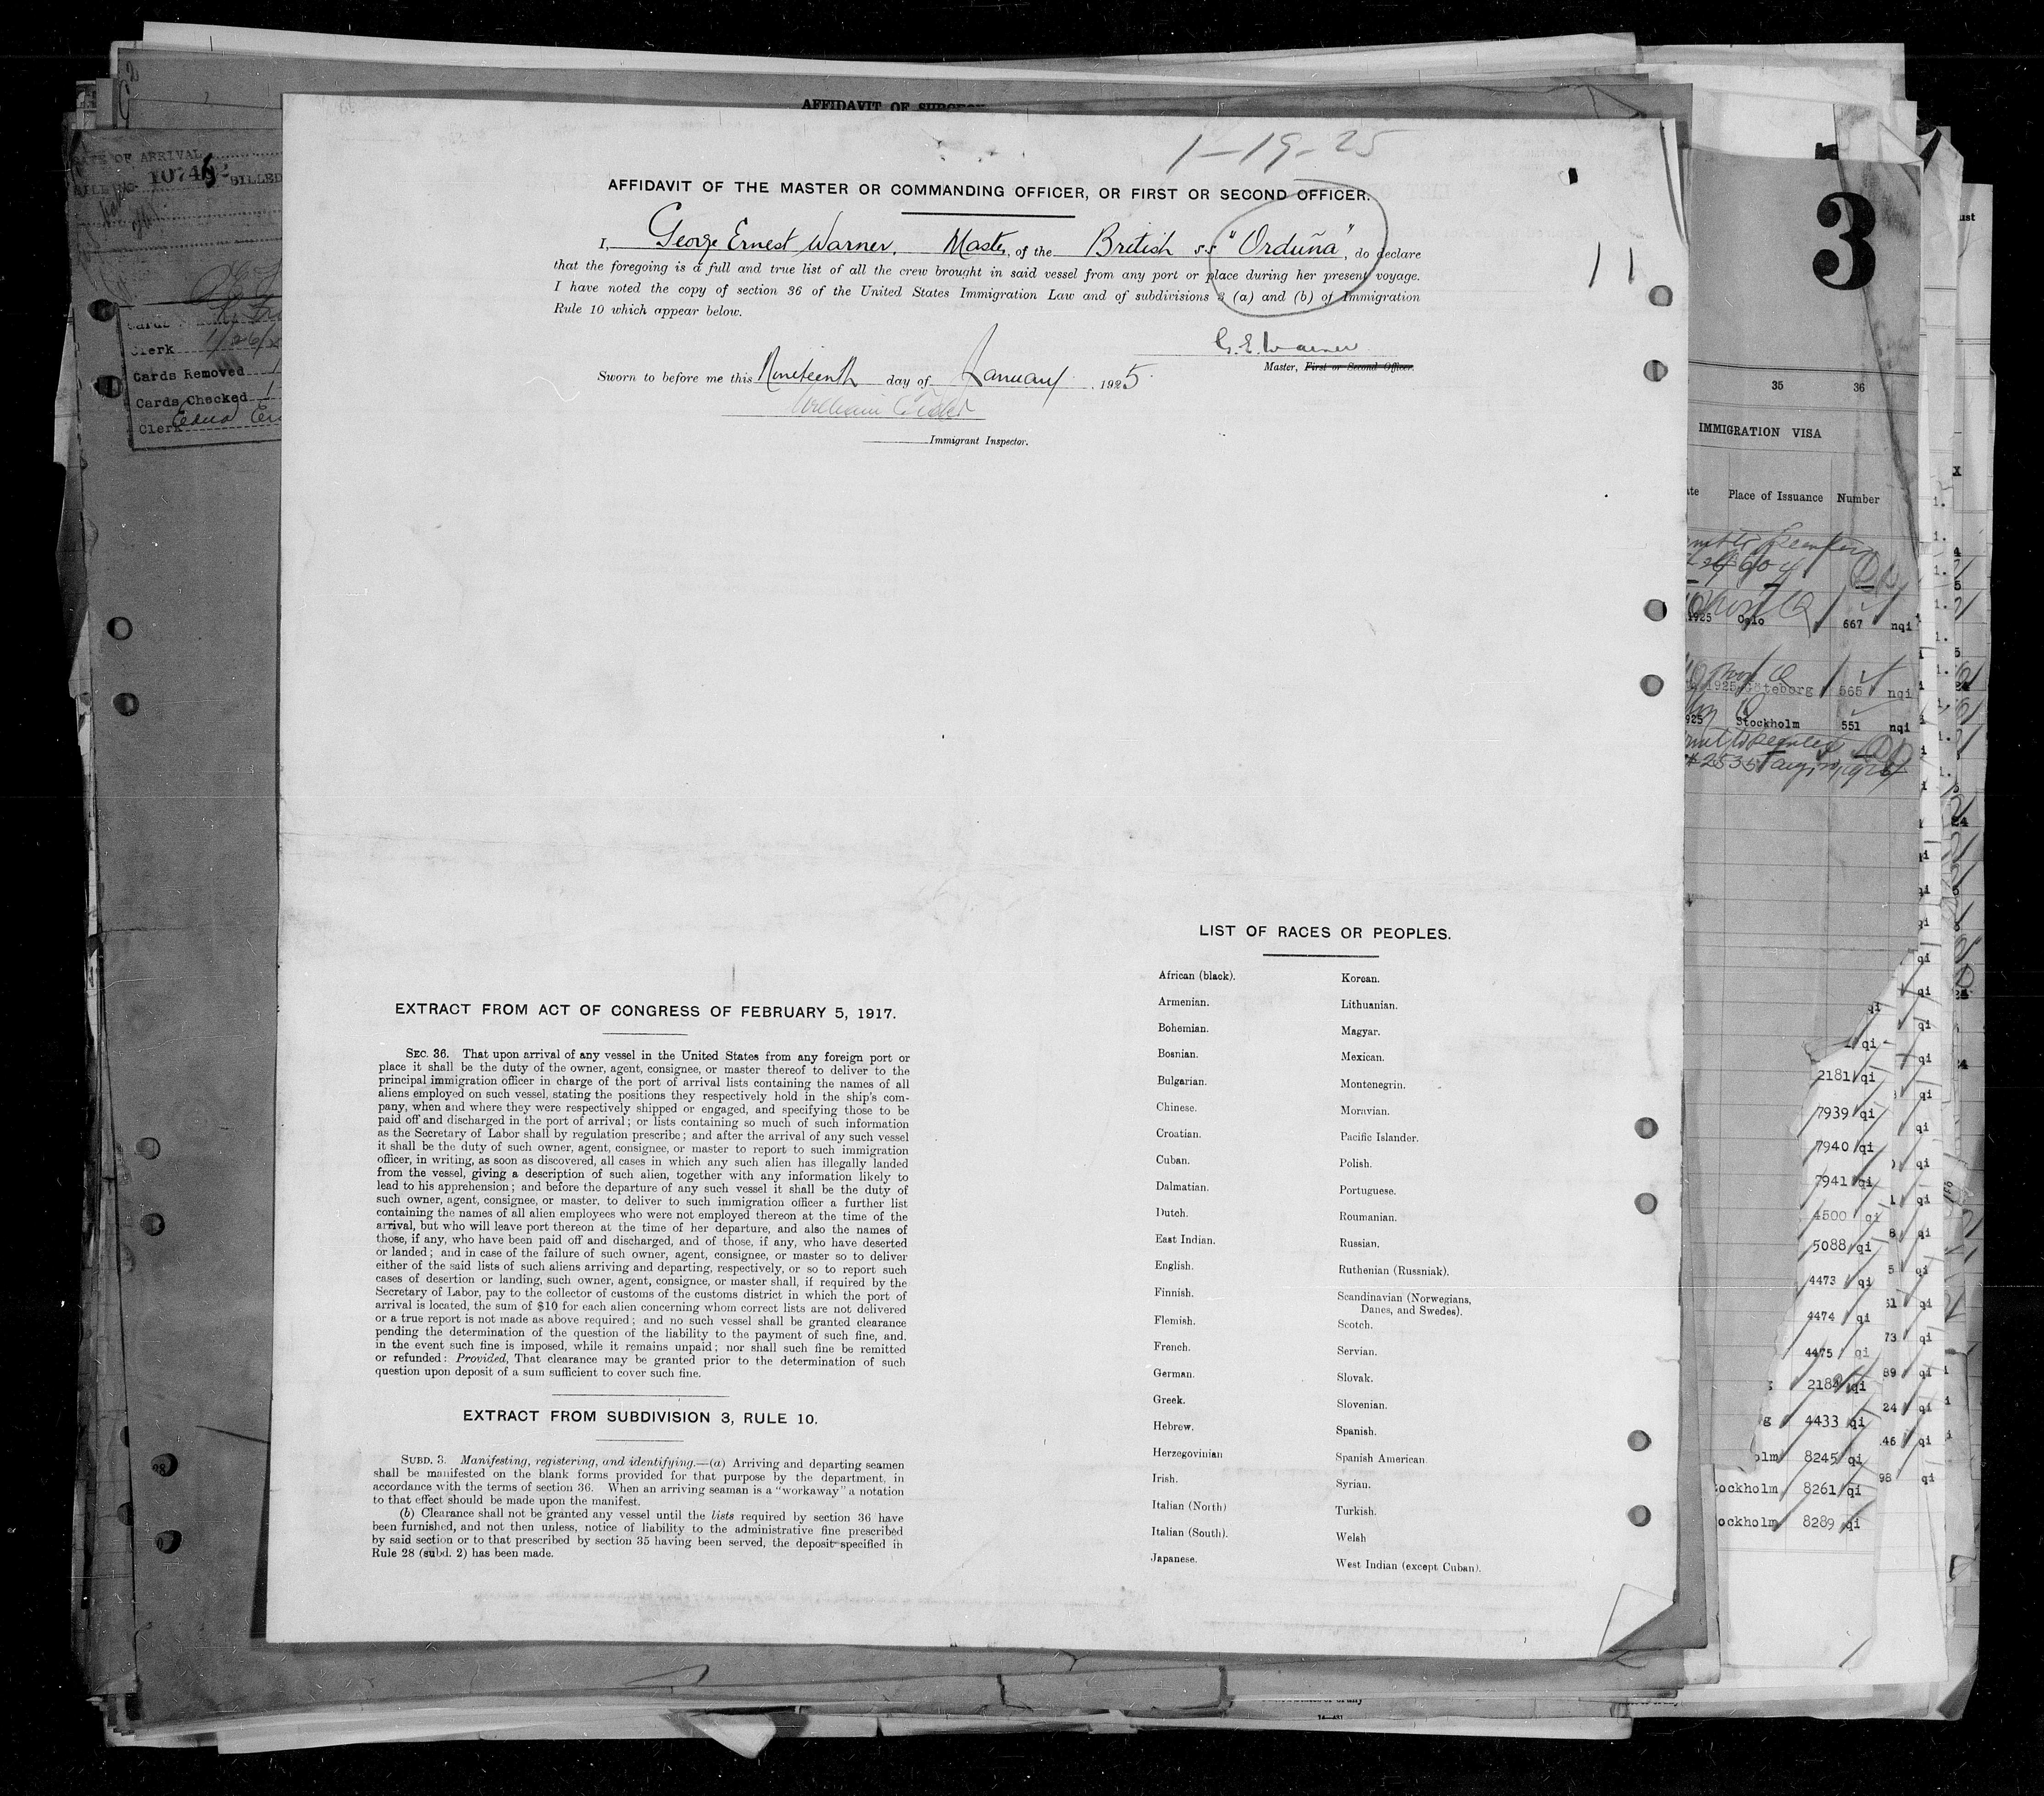 AFFIDAVIT OF SURGEON
1-19-25
AFFIDAVIT OF THE MASTER OR COMMANDING OFFICER, OR FIRST OR SECOND OFFICER.
I, George Ernest Warner, Master, of the British ss "Orduña", do declare
that the foregoing is a full and true list of all the crew brought in said vessel from any port or place during her present voyage.
I have noted the copy of section 36 of the United States Immigration Law and of subdivisions 3 (a) and (b) of Immigration
Rule 10 which appear below.
11
G. E. Warner
Master, First or Second Officer.
Sworn to before me this Nineteenth day of January, 1925.
William
Immigrant Inspector.
EXTRACT FROM ACT OF CONGRESS OF FEBRUARY 5, 1917.
SEC. 36. That upon arrival of any vessel in the United States from any foreign port or
place it shall be the duty of the owner, agent, consignee, or master thereof to deliver to the
principal immigration officer in charge of the port of arrival lists containing the names of all
aliens employed on such vessel, stating the positions they respectively hold in the ship's com-
pany, when and where they were respectively shipped or engaged, and specifying those to be
paid off and discharged in the port of arrival; or lists containing so much of such information
as the Secretary of Labor shall by regulation prescribe; and after the arrival of any such vessel
it shall be the duty of such owner, agent, consignee, or master to report to such immigration
officer, in writing, as soon as discovered, all cases in which any such alien has illegally landed
from the vessel, giving a description of such alien, together with any information likely to
lead to his apprehension; and before the departure of any such vessel it shall be the duty of
such owner, agent, consignee, or master, to deliver to such immigration officer a further list
containing the names of all alien employees who were not employed thereon at the time of the
arrival, but who will leave port thereon at the time of her departure, and also the names of
those, if any, who have been paid off and discharged, and of those, if any, who have deserted
or landed; and in case of the failure of such owner, agent, consignee, or master so to deliver
either of the said lists of such aliens arriving and departing, respectively, or so to report such
cases of desertion or landing, such owner, agent, consignee, or master shall, if required by the
Secretary of Labor, pay to the collector of customs of the customs district in which the port of
arrival is located, the sum of $10 for each alien concerning whom correct lists are not delivered
or a true report is not made as above required; and no such vessel shall be granted clearance
pending the determination of the question of the liability to the payment of such fine, and,
in the event such fine is imposed, while it remains unpaid; nor shall such fine be remitted
or refunded: Provided, That clearance may be granted prior to the determination of such
question upon deposit of a sum sufficient to cover such fine.
EXTRACT FROM SUBDIVISION 3, RULE 10.
SUBD. 3. Manifesting, registering, and identifying.—(a) Arriving and departing seamen
shall be manifested on the blank forms provided for that purpose by the department, in
accordance with the terms of section 36. When an arriving seaman is a "workaway" a notation
to that effect should be made upon the manifest.
(b) Clearance shall not be granted any vessel until the lists required by section 36 have
been furnished, and not then unless, notice of liability to the administrative fine prescribed
by said section or to that prescribed by section 35 having been served, the deposit specified in
Rule 28 (subd. 2) has been made.
LIST OF RACES OR PEOPLES.
African (black).
Armenian.
Bohemian.
Bosnian.
Bulgarian.
Chinese.
Croatian.
Cuban.
Dalmatian.
Dutch.
East Indian.
English.
Finnish.
Flemish.
French.
German.
Greek.
Hebrew.
Herzegovinian
Irish.
Italian (North)
Italian (South).
Japanese.
Korean.
Lithuanian.
Magyar.
Mexican.
Montenegrin.
Moravian.
Pacific Islander.
Polish.
Portuguese.
Roumanian.
Russian.
Ruthenian (Russniak).
Scandinavian (Norwegians,
Danes, and Swedes).
Scotch.
Servian.
Slovak.
Slovenian.
Spanish.
Spanish American.
Syrian.
Turkish.
Welsh
West Indian (except Cuban).
OF ARRIVAL
BILLED
Clerk
Cards Removed
Cards Checked
Clerk Edna
3
35 36
IMMIGRATION VISA
Place of Issuance Number
1925 Oslo 667 nqi
1925 Göteborg 565 nqi
Stockholm 551 nqi
2181 qi
7939 qi
7940 qi
7941 qi
4500 qi
5088 qi
4473 qi
4474 qi
4475 qi
4433 qi
8245 qi
8261 qi
8289 qi